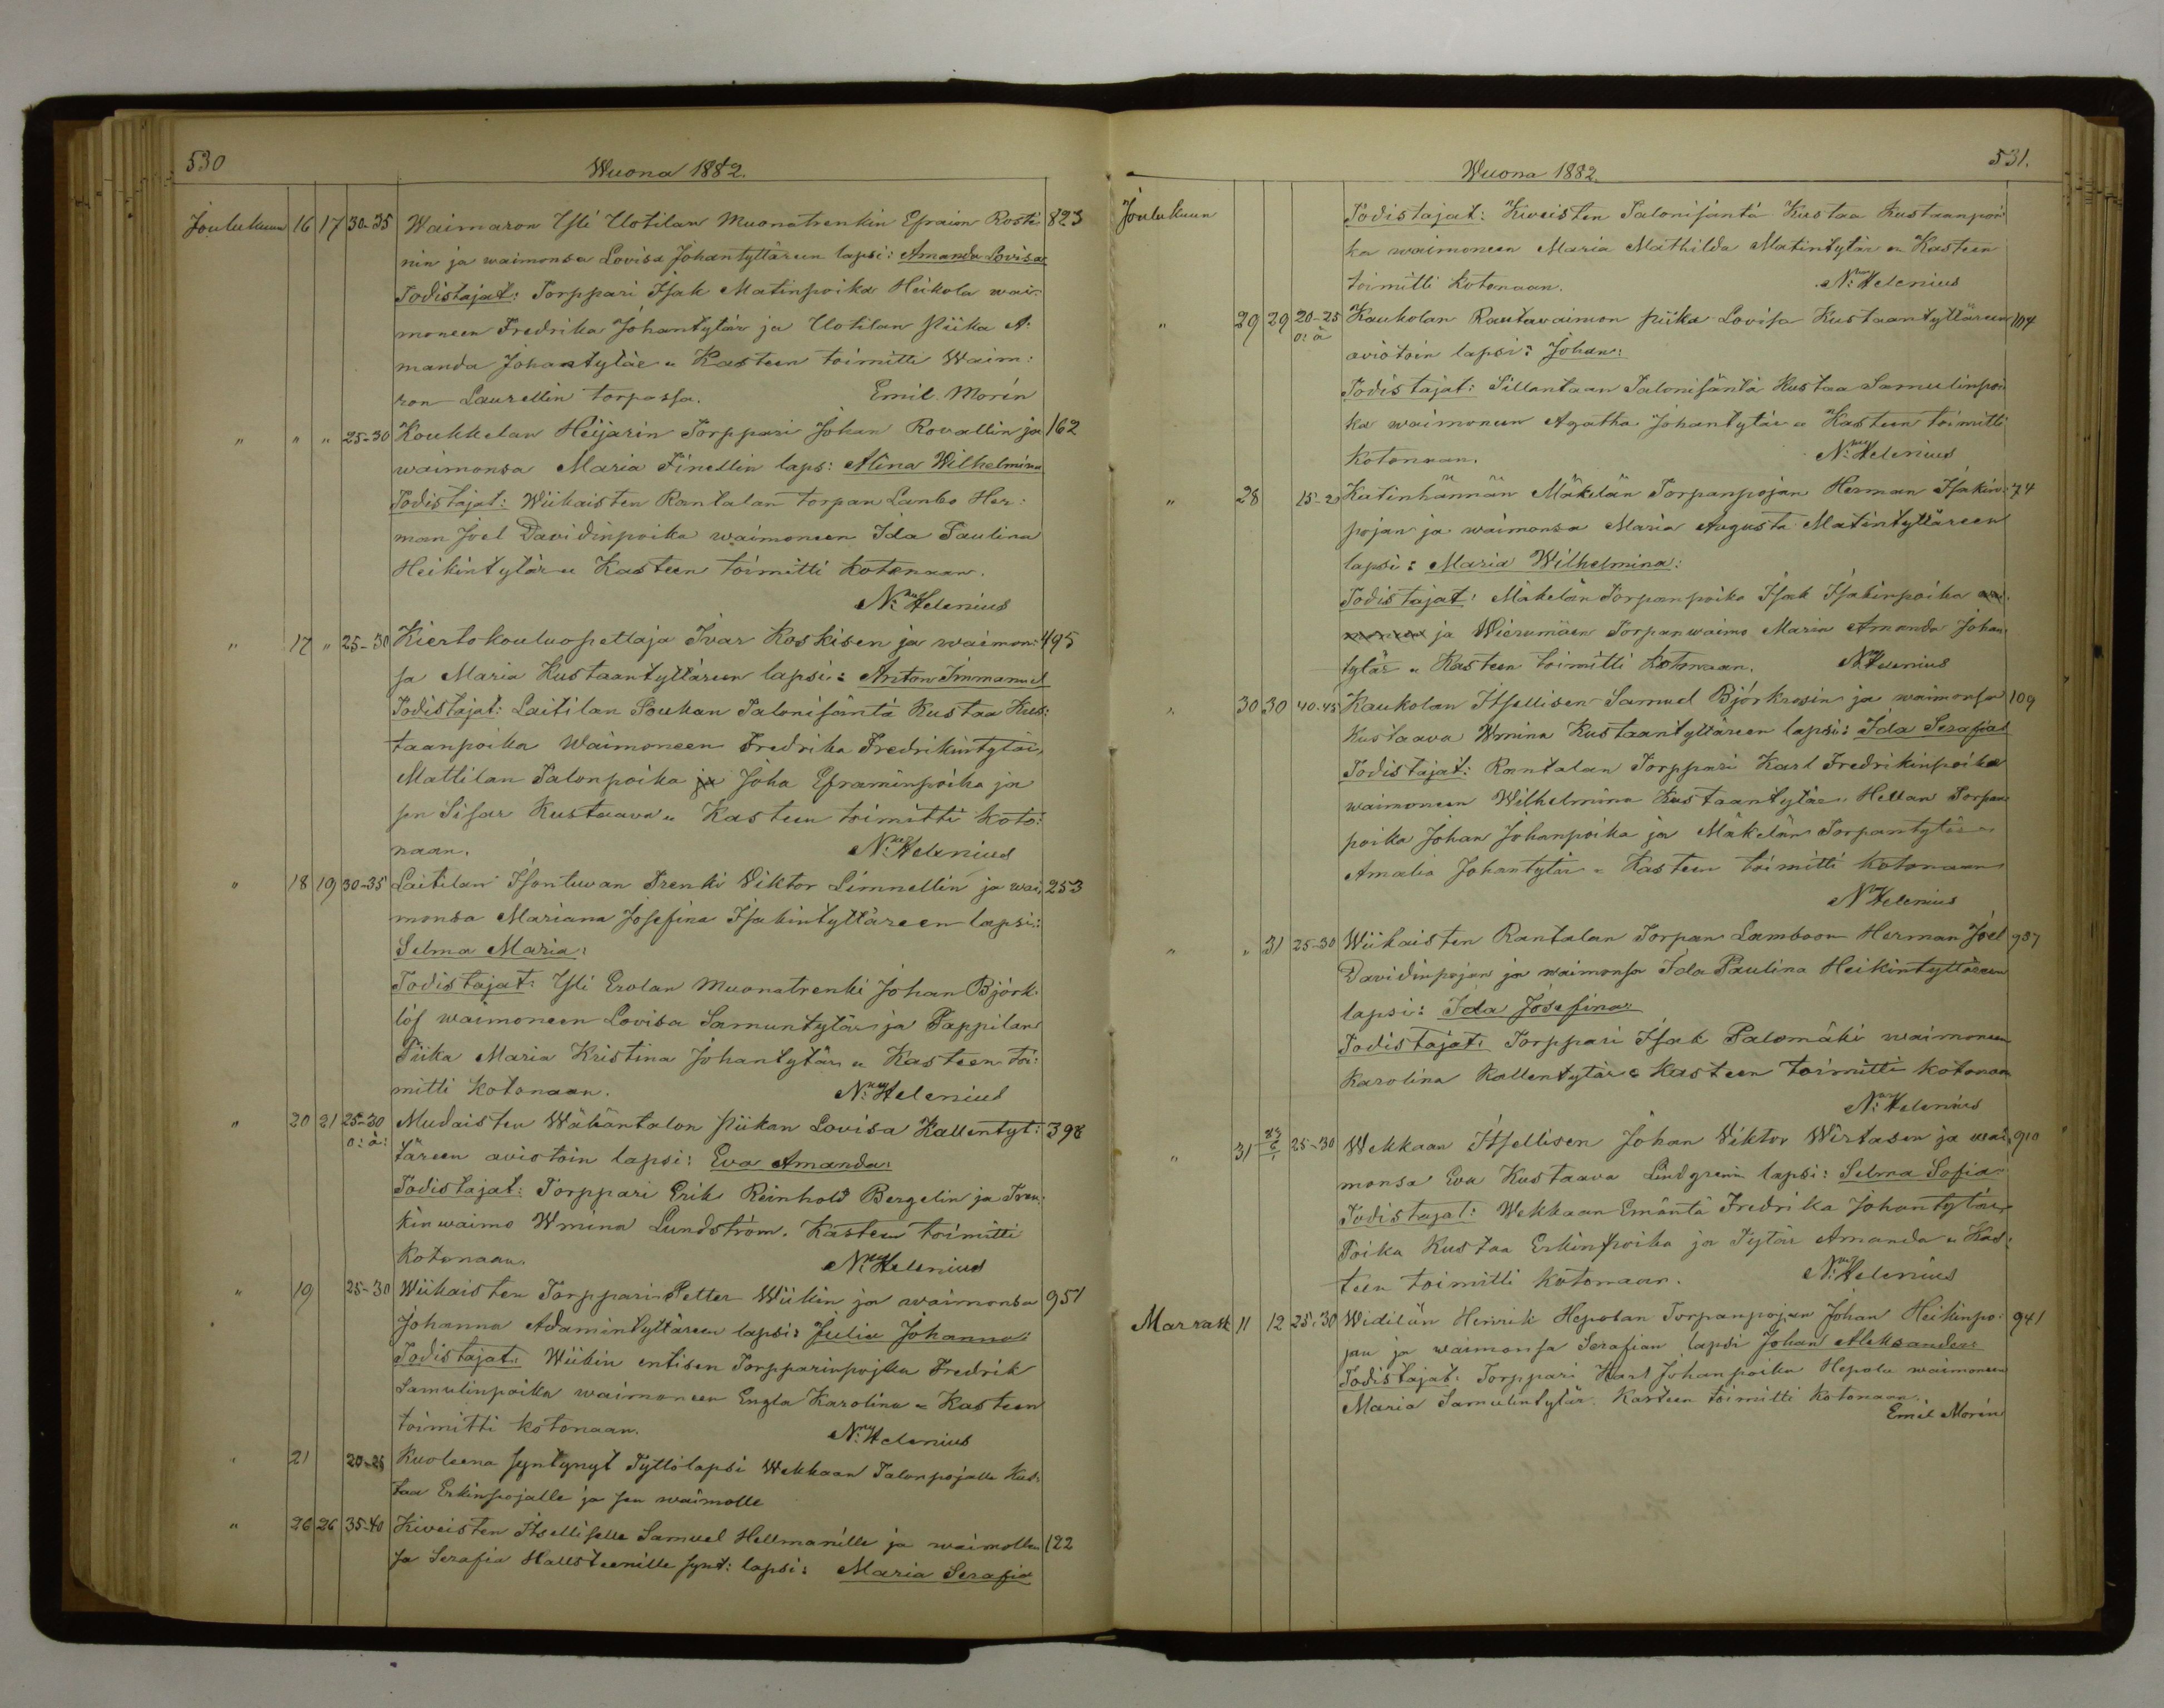 530
Wuona 1882.
Joulukuun 16 17 30-35 Waimaron Yli Uotilan Muonatrenkin Efraim Rosti 823
nin ja waimonsa Lovisa Johantyttären lapsi: Amanda Lovisa
Todistajat: Torppari Isak Matinpoika Heikola wai:
moneen Fredrika Johantytär ja Uotilan Piika A:
manda Johantytär „ Kasteen toimitti Waim:
ron Laurellin torpassa. Emil Morin
„ „ „ 25-30 Koukkelan Heijarin Torppari Johan Rovallin ja 162
waimonsa Maria Finellin laps: Alina Wilhelmina
Todistajat: Wiikaisten Rantalan torpan Lambo Her:
man Joel Davidinpoika waimoneen Ida Paulina
Heikintytär „ Kasteen toimitti kotonaan.
N. Helenius
„ 17 „ 25-30 Kiertokouluopettaja Ivar Koskisen ja waimon: 495
sa Maria Kustaantyttären lapsi: Anton Immanuel
Todistajat: Laitilan Soukan Talonisäntä Kustaa Kus:
taanpoika Waimoneen Fredrika Fredrikintytär,
Mattilan Talonpoika ja Joha Eframinpoika ja
sen Sisar Kustaava „ Kasteen toimitti koto:
naan. N. Helenius
„ 18 19 30-35 Laitilan Isontuwan Trenki Viktor Limnellin ja wai 253
monsa Mariana Josefina Isakintyttäreen lapsi:
Selma Maria:
Todistajat: Yli Erolan Muonatrenki Johan Björk:
löf waimoneen Lovisa Samuntytär ja Pappilan
Piika Maria Kristina Johantytär „ Kasteen toi:
mitti kotonaan. N. Helenius
„ 20 21 25-30 Mudaisten Wähäntalon Piikan Lovisa Kallentyt: 398
o: ä: täreen aviotoin lapsi: Eva Amanda:
Todistajat: Torppari Erik Reinhold Bergelin ja Tren:
kin waimo Wmina Lundström. Kasteen toimitti
Kotonaan. N. Helenius
„ 19 25-30 Wiikaisten Torppari Petter Wiikin ja waimonsa 951
Johanna Adamintyttären lapsi: Julia Johanna:
Todistajat: Wiikin entisen Torpparinpojka Fredrik
Samulinpoika waimoneen Engla Karolina „ Kasteen
toimitti kotonaan. N. Helenius
„ 21 20-25 Kuoleena syntynyt Tyttölapsi Wekkaan Talonpojalle Kus:
taa Erkinpojalle ja sen waimolle
„ 26 26 35-40 Kiveisten Itselliselle Samuel Hellmanille ja waimollen 122
sa Serafia Hallsteenille synt: lapsi: Maria Serafia
531.
Wuona 1882.
Joulukuun Todistajat: Kiveisten Talonisäntä Kustaa Kustaanpoi
ka waimoneen Maria Mathilda Matintytär „ Kasteen
toimitti kotonaan. N. Helenius
„ 29 29 20-25 Kaukolan Rautawaimon piika Lovisa Kustaantyttäreen 104
o: ä aviotoin lapsi: Johan:
Todistajat: Sillantaan Talonisäntä Kustaa Samulinpoi
ka waimoneen Agatha Johantytär „ Kasteen toimitti
kotonaan. N. Helenius
„ 28 15-20 Katinhännän Mäkelän Torpanpojan Herman Isakin: 74
pojan ja waimonsa Maria Augusta Matintyttäreen
lapsi: Maria Wilhelmina:
Todistajat: Mäkelän Torpanpoika Isak Isakinpoika wai
moneen ja Wierumäen Torpanwaimo Maria Amanda Johan
tytär „ Kasteen toimitti kotonaan. N. Helenius
„ 30 30 40-45 Kaukolan Itsellisen Samuel Björkrosin ja waimonsa 109
Kustaava Wmina Kustaantyttäreen lapsi: Ida Serafia
Todistajat: Rantalan Torppari Karl Fredrikinpoika
waimoneen Wilhelmina Kustaantytär „ Hellan Torpan
poika Johan Johanpoika ja Mäkelän Torpantytär
Amalia Johantytär „ Kasteen toimitti kotonaan
N. Helenius
„ „ 31 25-30 Wiikaisten Rantalan Torpan Lamboon Herman Joel 937
Davidinpojan ja waimonsa Ida Paulina Heikintyttäreen
lapsi: Ida Josefina:
Todistajat: Torppari Isak Palomäki waimoneen
Karolina Kallentytär „ Kasteen toimitti kotonaan
N. Helenius
„ 31 25-30 Wekkaan Itsellisen Johan Viktor Wirtasen ja wai 910
monsa Eva Kustaava Lindgrenin lapsi: Selma Sofia
Todistajat: Wekkaan Emäntä Fredrika Johantytär
Poika Kustaa Erkinpoika ja Tytär Amanda „ Kas:
teen toimitti kotonaan. N. Helenius
Marrask 11 12 25-30 Widilän Henrik Hepolan Torpanpojan Johan Heikinpo: 941
jan ja waimonsa Serafian lapsi Johan Aleksander:
Todistajat: Torppari Karl Johanpoika Hepola waimoneen
Maria Samulintytär. Kasteen toimitti kotonaan.
Emil Morin